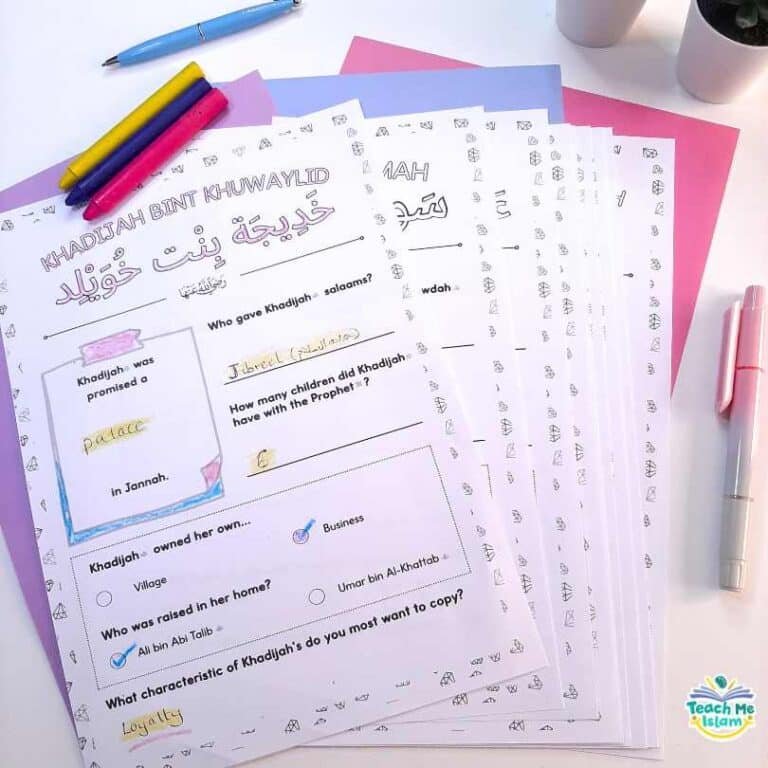 KHADIJAH BINT KHUWAYLID
خَدِيجَة بِنْت خُوَيْلِد
رضي الله عنها
Khadijah was
promised a
palace
in Jannah.
Who gave Khadijah salaams?
Jibreel
How many children did Khadijah
have with the Prophet ?
6
Khadijah owned her own...
Village
Business
Who was raised in her home?
Ali bin Abi Talib
Umar bin Al-Khattab
What characteristic of Khadijah's do you most want to copy?
Loyalty
MAH
سو
wdah
H
Teach Me
Islam